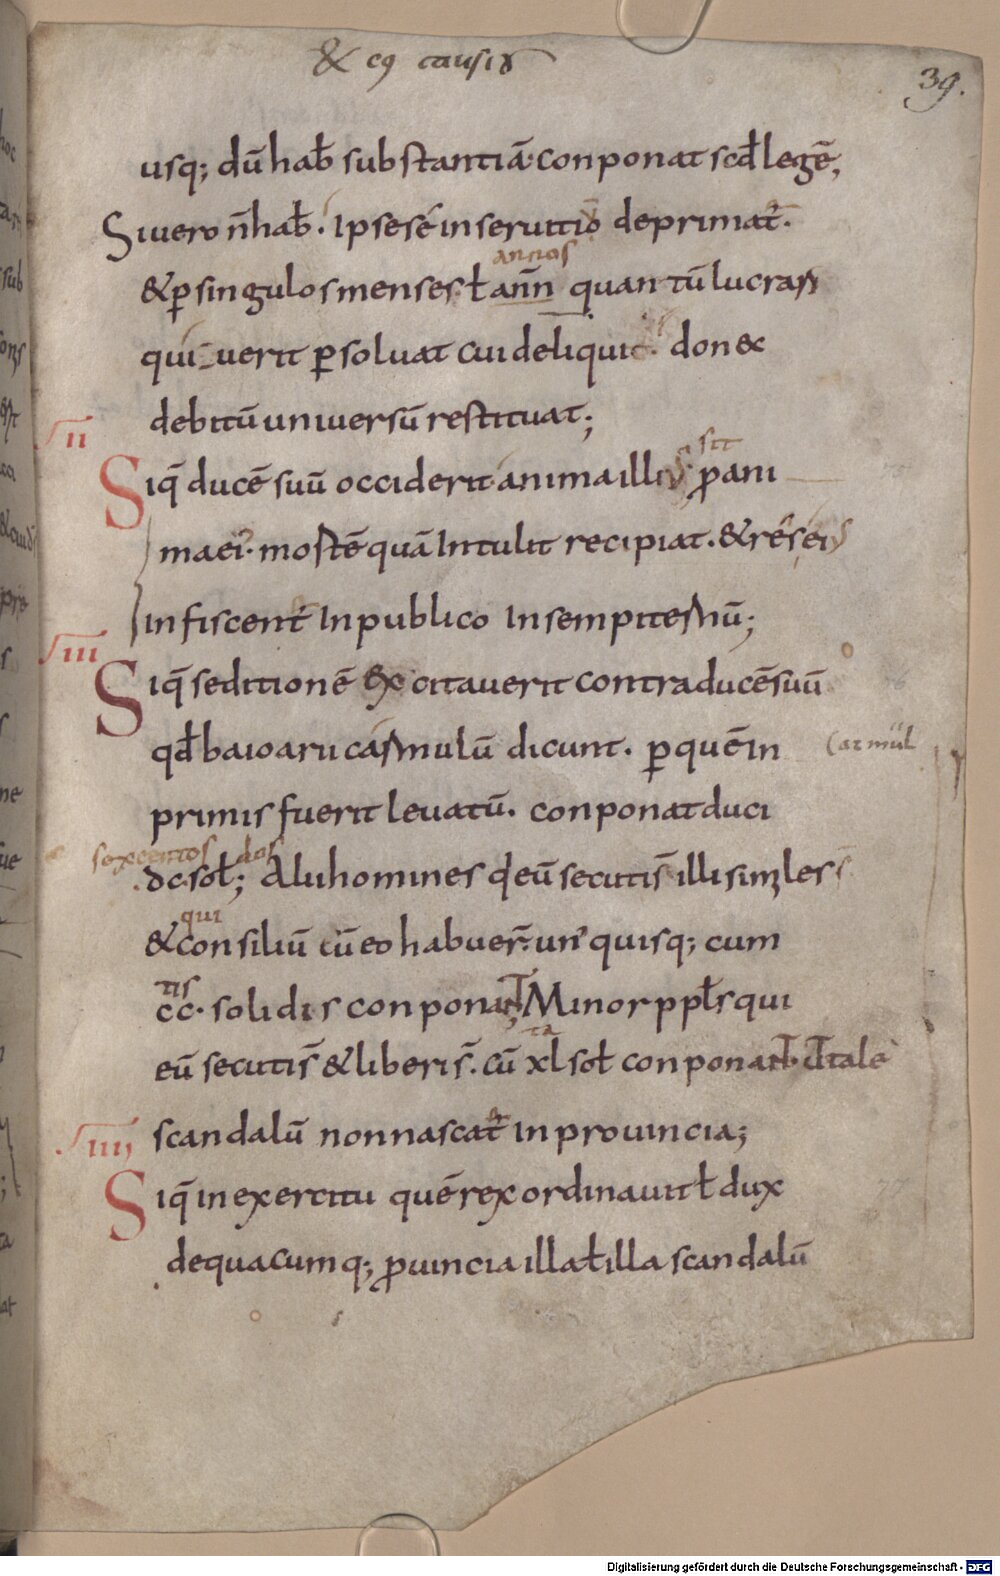 & eꝯ causis
39.
usq; dū hab̄ substantiā· conponat scd̄ legē;
Siuero n̄ hab̄. Ipse sé in seruitio deprimat̄.
annos
& ꝑ singulos menses ł ann̄ quantū lucrare
quiuerit ꝑsoluat cui deliquit. donec
debitū uniuersū restituat;
II
sit
Siq̄ ducē suū occiderit anima illius ꝓ ani
ma ei'· mortē quā Intulit recipiat. & res ei'
infiscent̄ In publico In sempiternū;
III
Siq̄ seditionē excitauerit contra ducē suū
qd̄ baioarii carmulū dicunt. ꝑ quē In
carmul
primis fuerit leuatū. conponat duci
sexcentos dos
.dc. soł; Alii homines q̄ eū secuti s̄ illi similes
qui
& consiliū cū eo habuer̄. un' quisq; cum
tis
cc. solidis conponat; Minor ppl̄s qui
ta
eū secuti s̄ & liberi s̄. cū xl soł conponat ut tale
scandalū non nascat̄ in prouincia;
IIII
Siq̄ in exercitu quē rex ordinauit ł dux
de quacumq; ꝓuincia illa ł illa scandalū
Digitalisierung gefördert durch die Deutsche Forschungsgemeinschaft - DFG